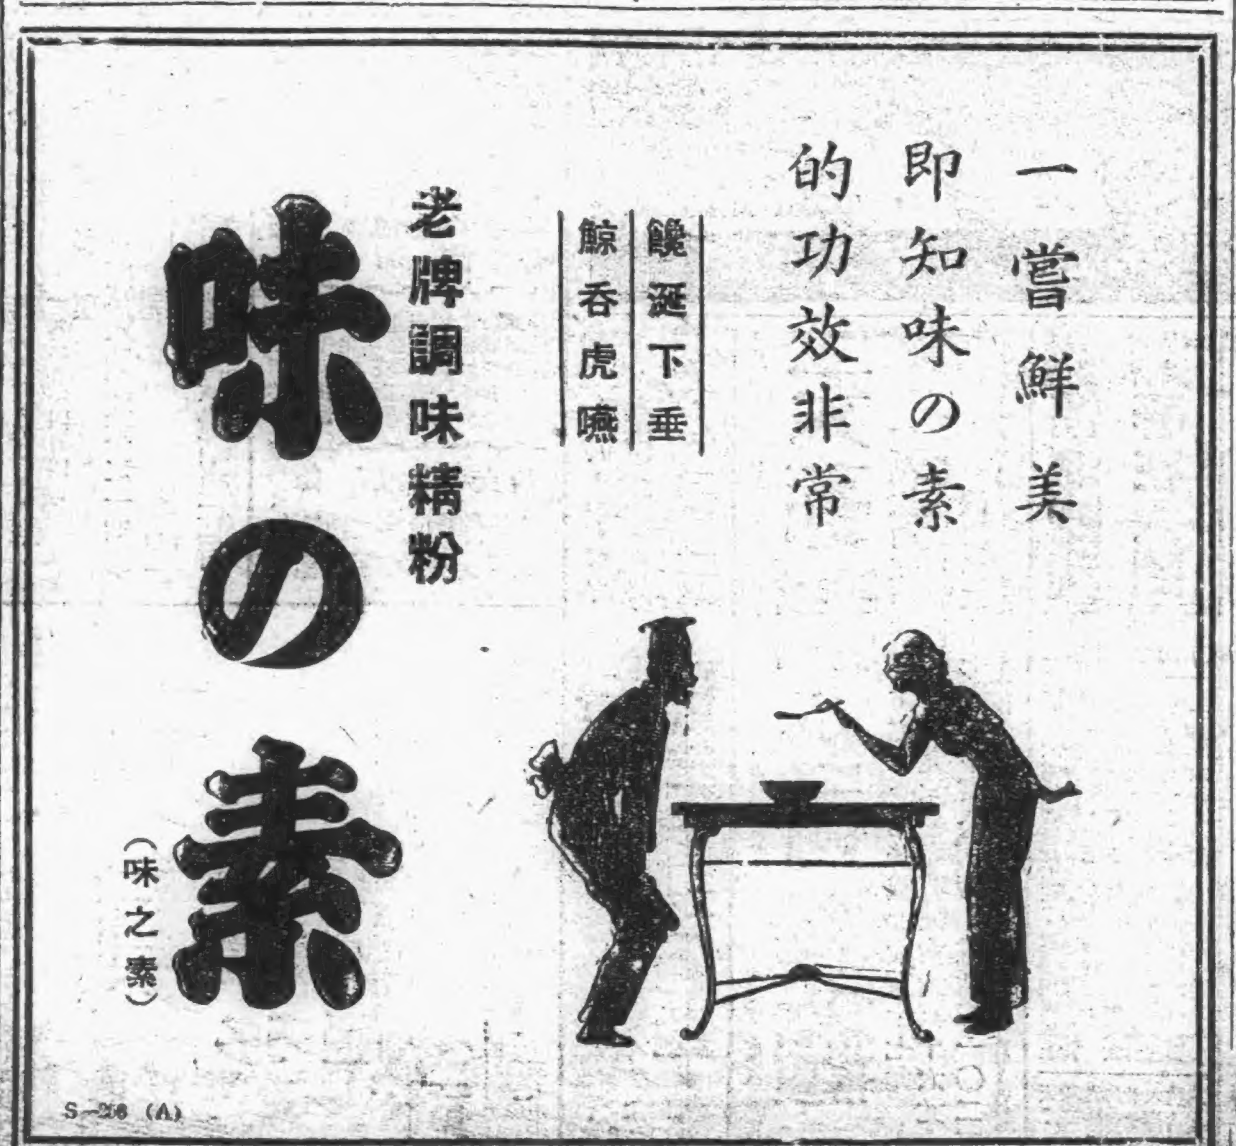 一嘗鮮美
即知味の素
的功效非常
饞涎下垂
鯨呑虎嚥
老牌調味精粉
味の素
（味之素）